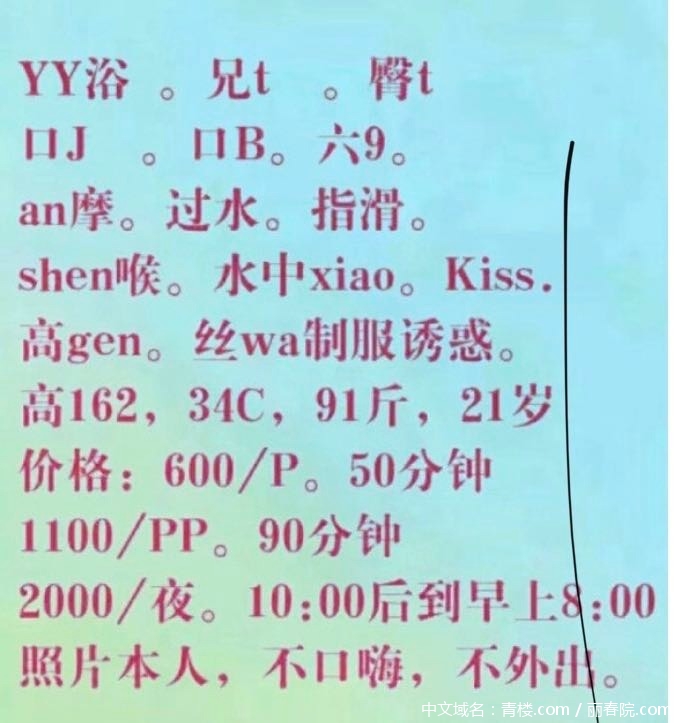 YY浴 。兄t 。臀t
口J 。口B。六9。
an摩。过水。指滑。
shen喉。水中xiao。Kiss.
高gen。丝wa制服诱惑。
高162，34C，91斤，21岁
价格：600/P。50分钟
1100/PP。90分钟
2000/夜。10:00后到早上8:00
照片本人，不口嗨，不外出。
中文域名：青楼.com / 丽春院.com